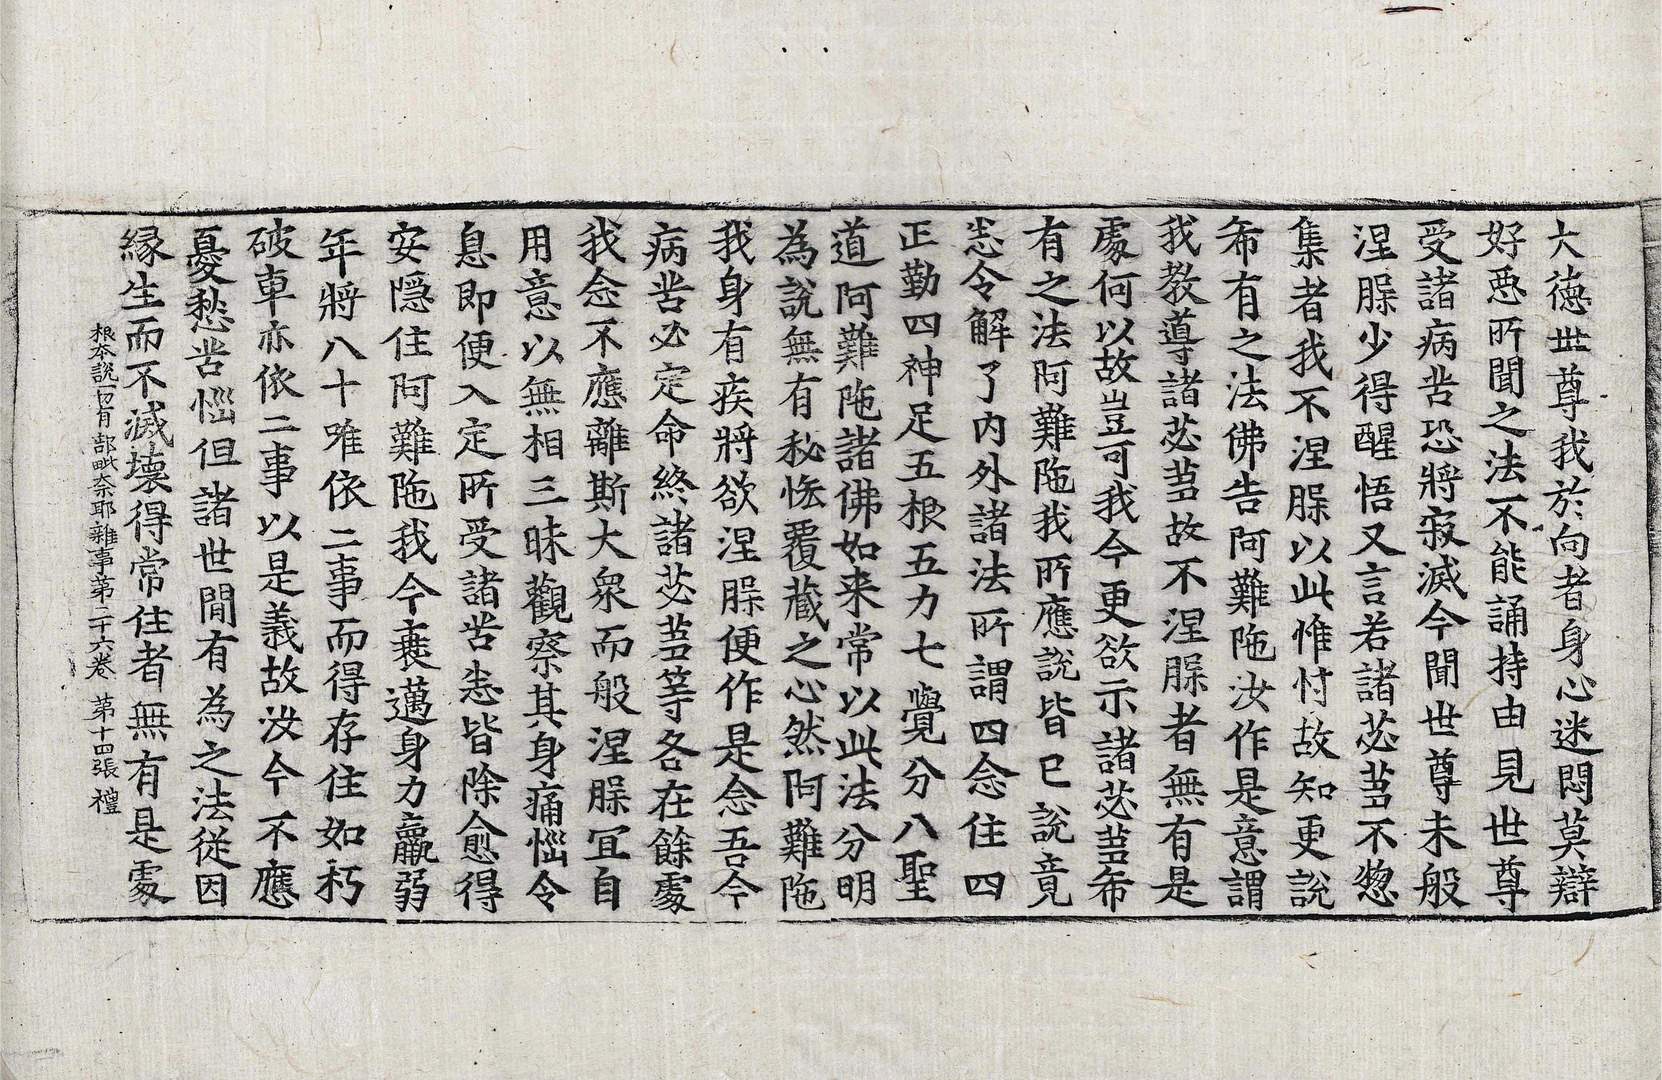 大德世尊我於向者身心迷悶莫辯
好惡所聞之法不能誦持由見世尊
受諸病苦恐將寂滅今聞世尊未般
涅槃少得醒悟又言若諸苾芻不惣
集者我不涅槃以此惟忖故知更說
希有之法佛告阿難陁汝作是意謂
我教導諸苾芻故不涅槃者無有是
處何以故豈可我今更欲示諸苾芻希
有之法阿難陁我所應說皆已說竟
恙令解了內外諸法所謂四念住四
正勤四神足五根五力七覺分八聖
道阿難陁諸佛如来常以此法分明
為說無有秘恡覆藏之心然阿難陁
我身有疾將欲涅槃便作是念吾今
病苦必定命終諸苾芻等各在餘處
我念不應離斯大衆而般涅槃冝自
用意以無相三昧觀察其身痛惱令
息即便入定所受諸苦悉皆除愈得
安隱住阿難陁我今衰邁身力羸弱
年將八十唯依二事而得存住如朽
破車亦依二事以是義故汝今不應
憂愁苦惱但諸世間有為之法從因
緣生而不滅壞得常住者無有是處
根本說一切有部毗奈耶雜事第二十六卷 第十四張 禮